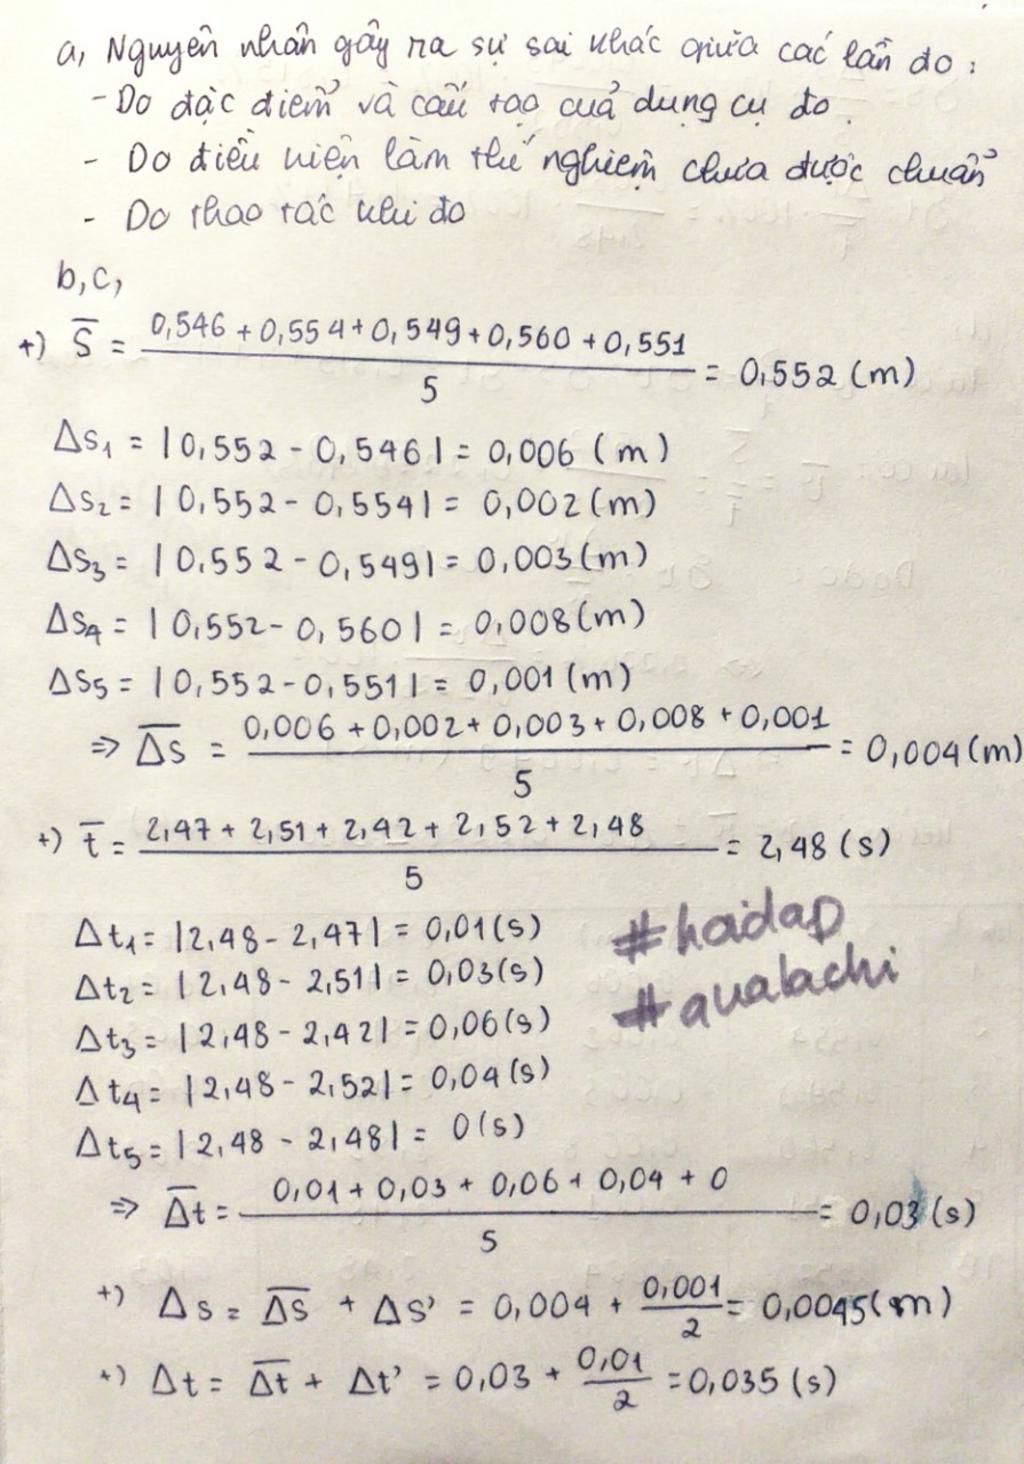 a, Nguyên nhân gây ra sự sai khác giữa các lần đo :
- Do đặc điểm và cấu tạo của dụng cụ đo.
- Do điều kiện làm thí nghiệm chưa được chuẩn
- Do thao tác khi đo
b, c,
+) S̅ = (0,546 + 0,554 + 0,549 + 0,560 + 0,551)/5 = 0,552 (m)
Δs₁ = |0,552 - 0,546| = 0,006 (m)
Δs₂ = |0,552 - 0,554| = 0,002 (m)
Δs₃ = |0,552 - 0,549| = 0,003 (m)
Δs₄ = |0,552 - 0,560| = 0,008 (m)
Δs₅ = |0,552 - 0,551| = 0,001 (m)
=> Δ̅s̅ = (0,006 + 0,002 + 0,003 + 0,008 + 0,001)/5 = 0,004 (m)
+) t̅ = (2,47 + 2,51 + 2,42 + 2,52 + 2,48)/5 = 2,48 (s)
Δt₁ = |2,48 - 2,47| = 0,01 (s)
Δt₂ = |2,48 - 2,51| = 0,03 (s)
Δt₃ = |2,48 - 2,42| = 0,06 (s)
Δt₄ = |2,48 - 2,52| = 0,04 (s)
Δt₅ = |2,48 - 2,48| = 0 (s)
#hoidap
#aualachi
=> Δ̅t̅ = (0,01 + 0,03 + 0,06 + 0,04 + 0)/5 = 0,03 (s)
+) Δs = Δ̅s̅ + Δs' = 0,004 + 0,001/2 = 0,0045 (m)
+) Δt = Δ̅t̅ + Δt' = 0,03 + 0,01/2 = 0,035 (s)